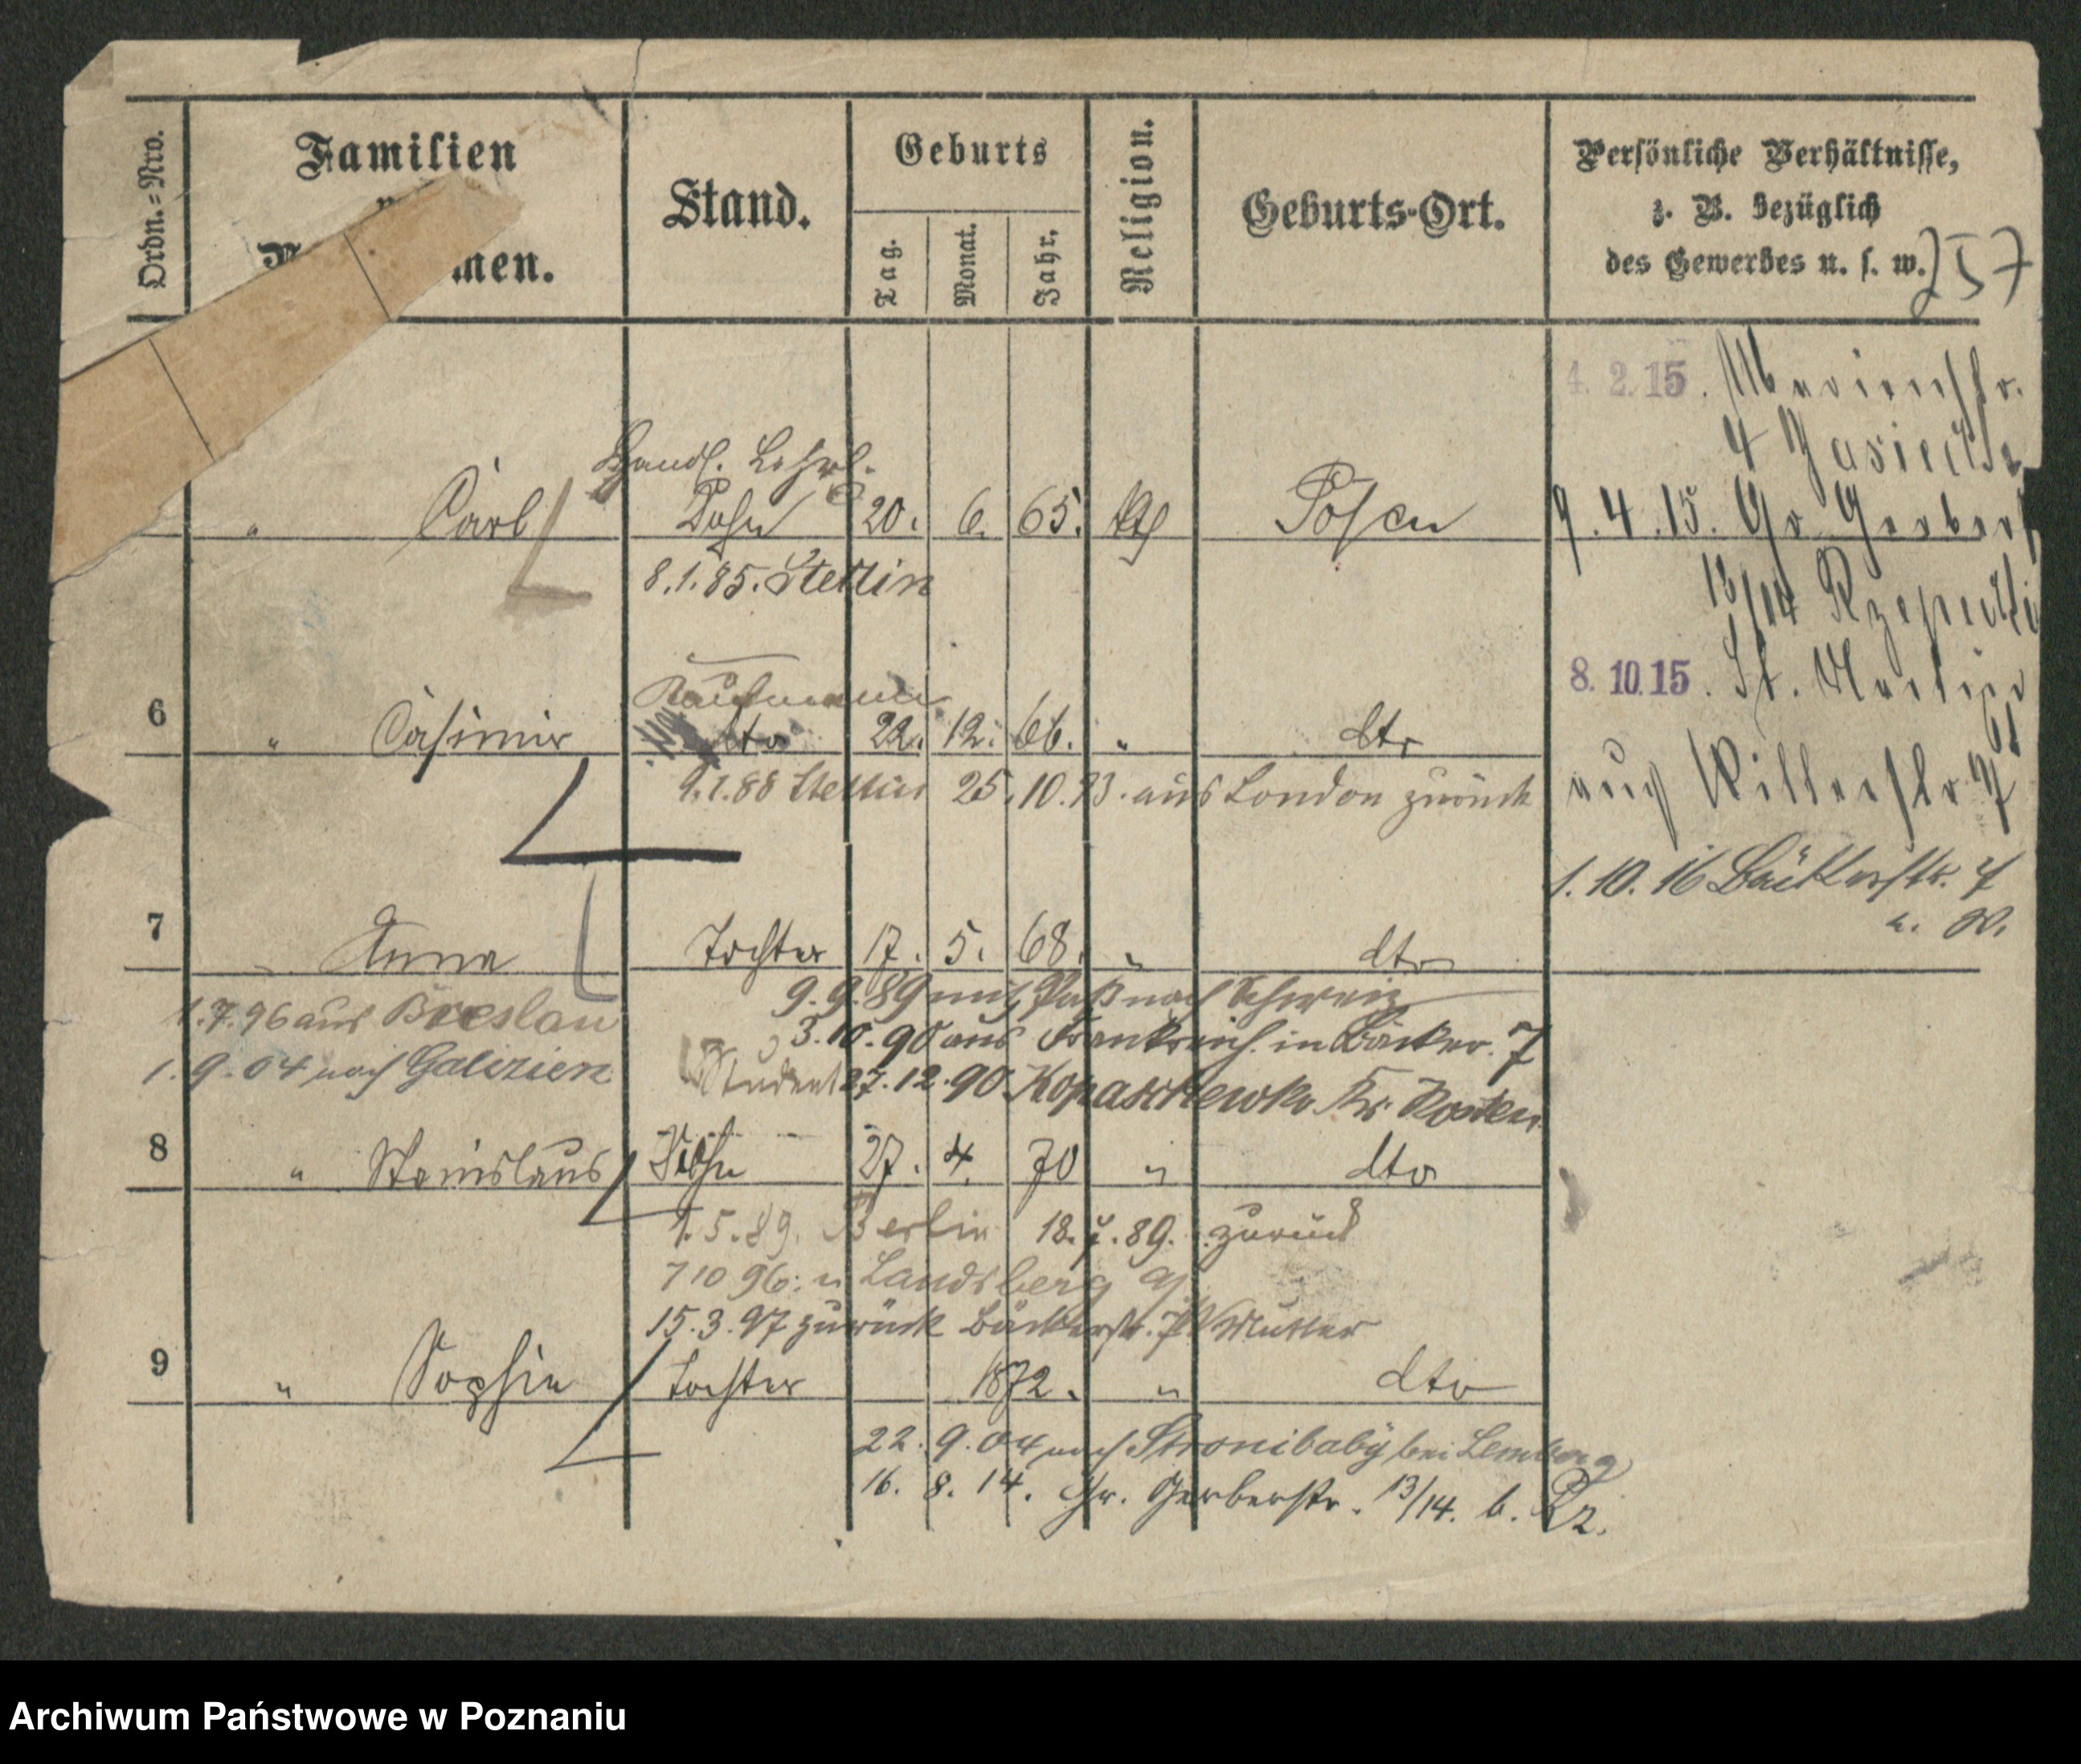 Ordn.=Nro.
Familien
men.
Stand.
Geburts
Tag.
Monat.
Jahr.
Religion.
Geburts-Ort.
Persönliche Verhältnisse,
z. B. bezüglich
des Gewerbes u. s. w.
257
Handl. Lehrl.
" Carl Sohn 20. 6. 65. kth Posen
8.1.85. Stettin
Kaufmann
6 " Casimir dto 22. 12. 66. " dto
9.1.88 Stettin 25.10.93. aus London zurück
7 " Anna Tochter 17. 5. 68. " dto
9.9.89 mit Paß nach Schweiz
1.7.96 aus Breslau
3.10.90 aus Frankreich in Bäcker. 7
1.9.04 nach Galizien
Student 27.12.90 Kopaszewko Kr. Kosten
8 " Stanislaus Sohn 27. 4. 70 " dto
1.5.89. Berlin 18.7.89. zurück
7 10 96. n Landsberg a/
15.3.97 zurück Bäckerstr. 7 Mutter
9 " Sophie Tochter 1872. " dto
22.9.04 nach Stronibaby bei Lemberg
16. 8. 14. Gr. Gerberstr. 13/14. b. Rz.
4. 2. 15. Marienstr.
4
9.4.15. Gr Gerber
13/14
8. 10. 15. St. Martin
61
auch Ritterstr
1.10.16 Bäckerstr. 7
Archiwum Państwowe w Poznaniu